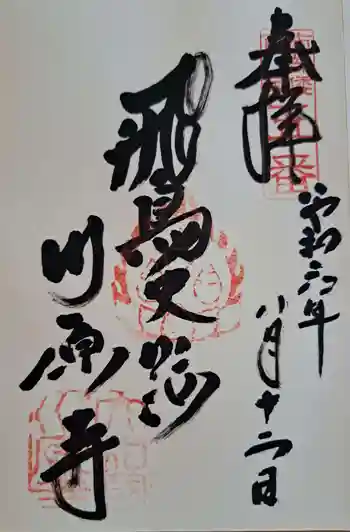 奉拝
令和六年
八月十二日
飛鳥史跡
川原寺